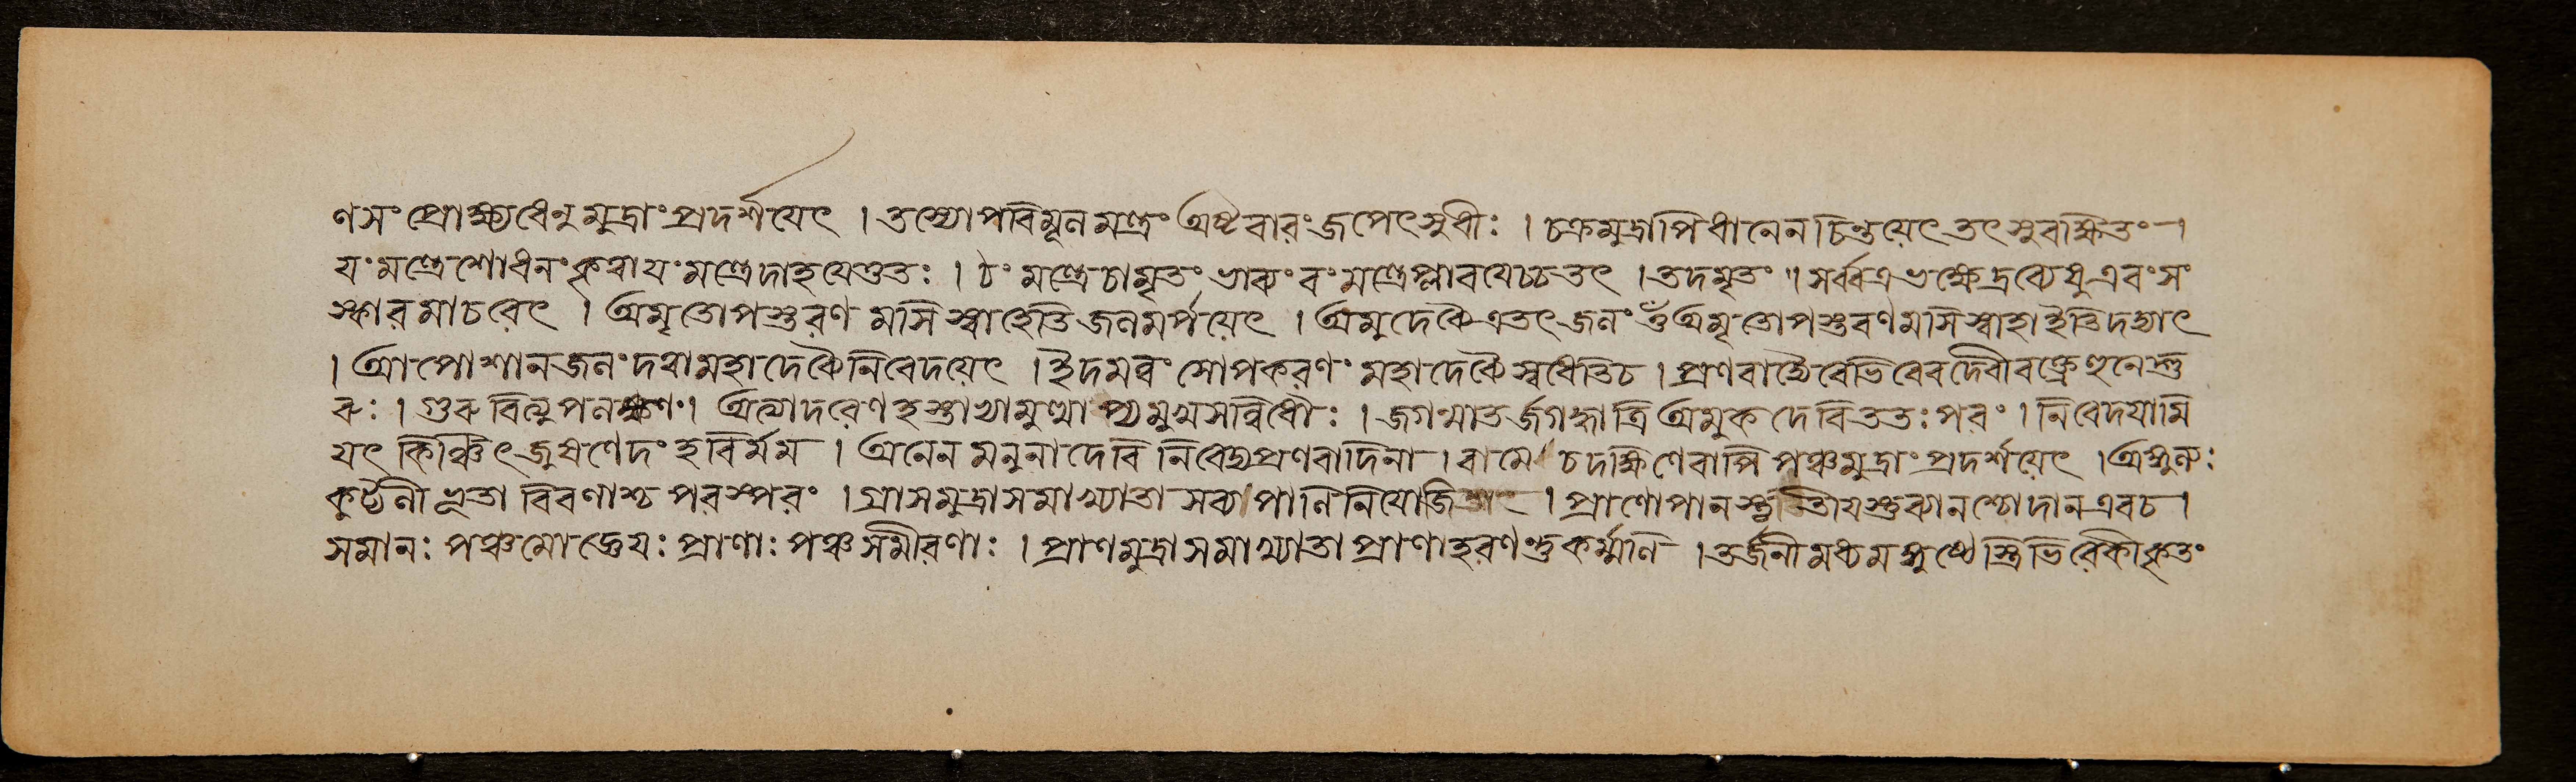 ণসংপ্রোক্ষ্যধেনুমুদ্রাংপ্রদর্শয়েৎ । তস্যোপরিমূলমন্ত্রং অষ্টবারং জপেৎসুধীঃ । চক্রমুদ্রাপিধানেনচিন্তয়েৎতৎ সুরক্ষিতং ।
যং মন্ত্রেশোধনংকৃত্বাযংমন্ত্রেদাহয়েত্ততঃ । ঠং মন্ত্রেচামৃতং ভাব্যং বং মন্ত্রেপ্লাবয়েচ্চতৎ । তদমৃতং ॥ সর্ব্বত্রভক্ষ্যেদ্রব্যেষুএবংসং
স্কারমাচরেৎ । অমৃতোপস্তরণ মসি স্বাহেতি জলমর্পয়েৎ । অমুদেব্যৈএতৎ জলং ওঁঅমৃতোপস্তরণমসি স্বাহাইতিদদ্যাৎ
। আপোশানজলংদত্বামহাদেব্যৈনিবেদয়েৎ । ইদমন্নং সোপকরণং মহাদেব্যৈস্বধেতিচ । প্রাণবাদ্যৈরেভিরেবদেবীবক্ত্রেহুনেত্তু
রুঃ । গুরু অত্যাদরেণহস্তাভ্যামুত্থাপ্যমুখসন্নিধৌঃ । জগন্মাতর্জগদ্ধাত্রি অমুক দেবিততঃপরং । নিবেদয়ামি
যৎ কিঞ্চিৎ জুষাণেদংহবির্মম । অনেন মনুনাদেবি নিবেদ্যপ্রণবাদিনা । বামে চদক্ষিণেবাপি পঞ্চমুদ্রাং প্রদর্শয়েৎ ।
পরস্পরং । গ্রাসমুদ্রাসমাখ্যাতা সব্যপাণিনিয়োজিতাং । প্রাণোপান ব্যানশ্চোদানএবচ ।
সমানঃ পঞ্চমোজ্ঞেয়ঃ প্রাণাঃ পঞ্চসমীরণাঃ । প্রাণমুদ্রাসমাখ্যাতাপ্রাণাহরণ কর্ম্মণি । তর্জনীমধ্যমাঙ্গুষ্ঠে স্ত্রিভিরেকীকৃতং